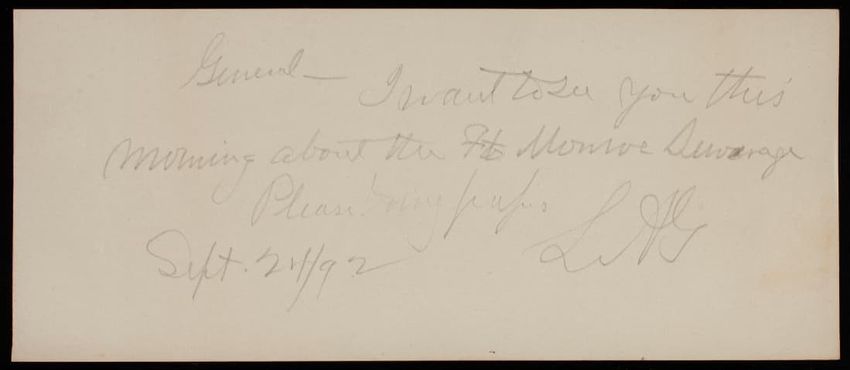 General — I want to see you this
morning about the Ft Monroe Sewerage
Please bring papers
Sept. 21/92 LAG